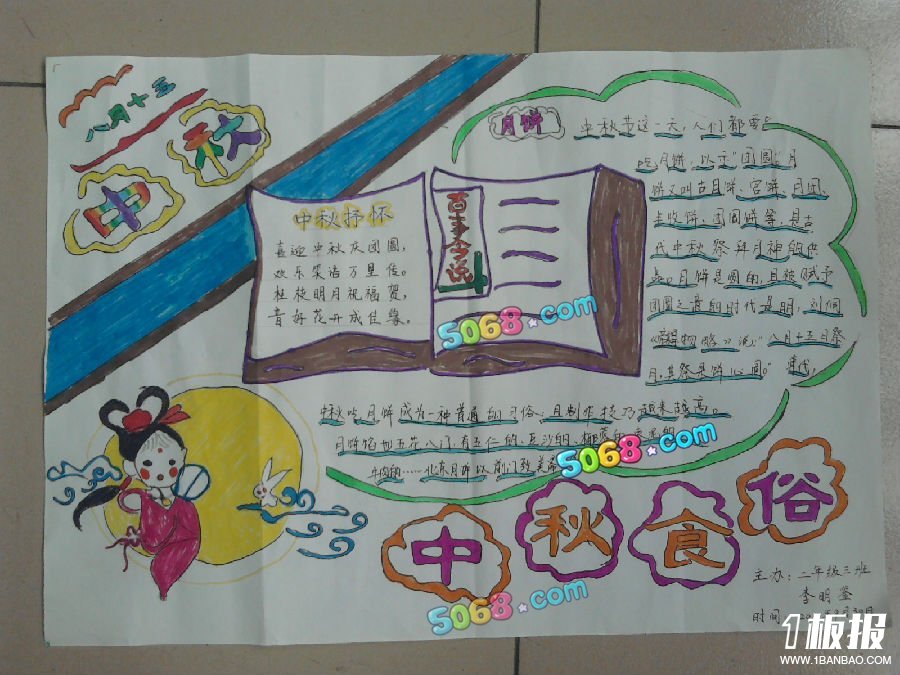 八月十五
中秋
中秋抒怀
喜迎中秋庆团圆，
欢乐荣浩万里传。
桂枝明月祝福贺，
音好花开成佳象。
百事全说
月饼
中秋节这一天，人们都要
吃月饼，以示"团圆"月
饼又叫古月饼、宫饼、月团、
丰收饼、团圆饼等，是古
代中秋祭拜月神的供
品。月饼是圆的，且被赋予
团圆之意的时代是明，刘侗
八月十五日祭
月，其祭果饼必圆。"清代，
中秋吃月饼成为一种普通的习俗，且制作技巧越来越高。
月饼馅如五花八门，有五仁的、豆沙的、
牛肉的……北京月饼以前门致美斋
中秋食俗
主办：二年级三班
时间
5068.com
5068.com
5068.com
1板报
WWW.1BANBAO.COM